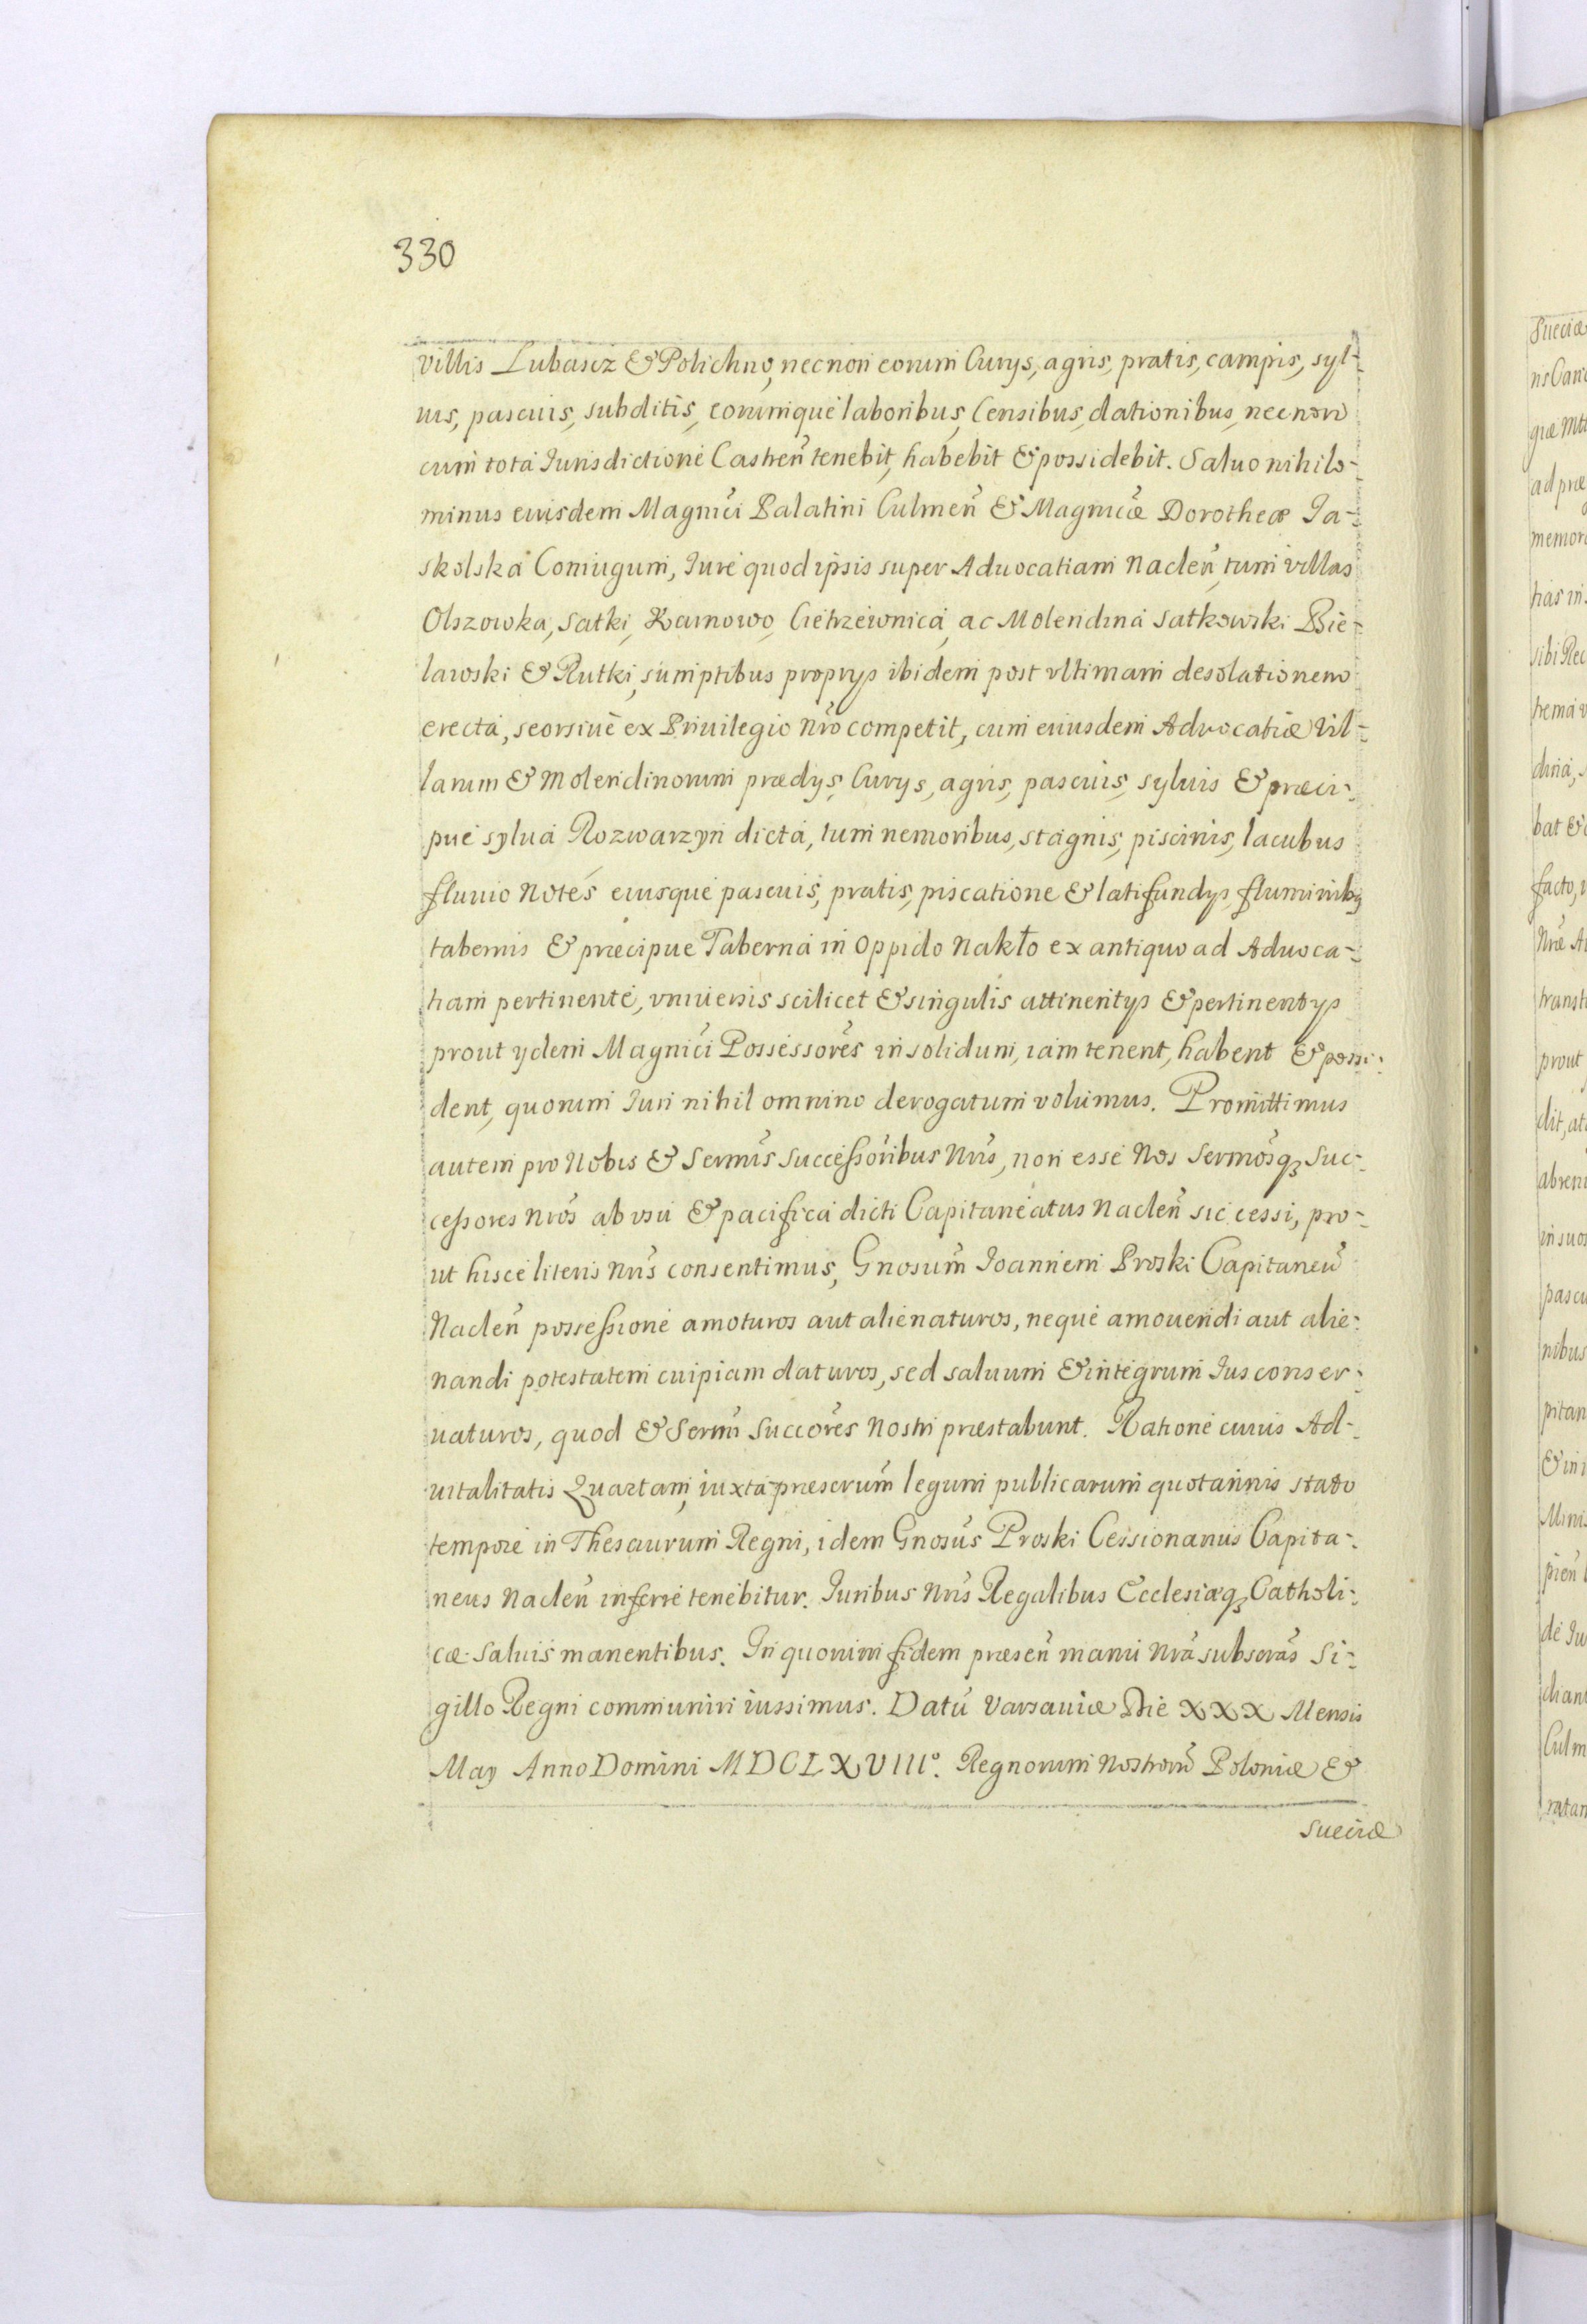 330
villis Lubascz & Polichno, necnon eorum Curys, agris, pratis, campis, syl-
uis, pascuis, subditis, eorumque laboribus, Censibus, dationibus, necnon
cum tota Iurisdictione Castren̄ tenebit, habebit & possidebit. Saluo nihilo-
minus eiusdem Magnīci Palatini Culmen̄ & Magnīcæ Dorotheæ Ia-
skolska Coniugum, Iure quod ipsis super Aduocatiam Naclen̄, tum villas
Olszowka, Satki, Karnowo, Cietrzewnica, ac Molendina Satkowski Bie-
lawski & Rutki, sumptibus proprys ibidem post vltimam desolationem
erecta, seorsiue ex Priuilegio Nr̄o competit, cum eiusdem Aduocatiæ Vil-
larum & Molendinorum prædys, Curys, agris, pascuis, syluis & præci-
pue sylua Rozwarzyn dicta, tum nemoribus, stagnis, piscinis, lacubus
fluuio Notes eiusque pascuis, pratis, piscatione & latifundys, fluminibꝫ
tabernis & præcipue Taberna in Oppido Nakło ex antiquo ad Aduoca-
tiam pertinente, vniuersis scilicet & singulis attinentys & pertinentys
prout ydem Magnīci Possessores in solidum, iam tenent, habent & possi-
dent, quorum Iuri nihil omnino derogatum volumus. Promittimus
autem pro Nobis & Serm̄is Successoribus Nr̄is, non esse Nos Serm̄osqꝫ Suc-
cessores Nr̄os ab vsu & pacifica dicti Capitaneatus Naclen̄ sic cessi, pro-
ut hisce literis Nr̄is consentimus, Gn̄osum Ioannem Proski Capitaneū
Naclen̄ possessione amoturos aut alienaturos, neque amouendi aut alie-
nandi potestatem cuipiam daturos, sed saluum & integrum Ius conser-
uaturos, quod & Serm̄i Succōres Nostri præstabunt. Ratione cuius Ad-
uitalitatis Quartam, iuxta præscrm̄ legum publicarum quotannis stato
tempore in Thesaurum Regni, idem Gn̄osus Proski Cessionarius Capita-
neus Naclen̄ inferre tenebitur. Iuribus Nr̄is Regalibus Ecclesiæqꝫ Catholi-
cæ saluis manentibus. In quorum fidem præsen̄ manu Nr̄a subscrās Si-
gillo Regni communiri iussimus. Datū Varsauiæ Die XXX Mensis
May Anno Domini MDCLXVIIIº. Regnorum Nostrorū Poloniæ &
Sueciæ